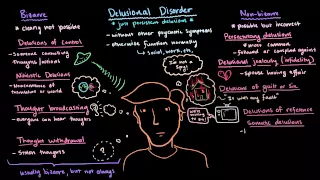 Delusional Disorder
* just persistent delusions
- without other psychotic symptoms
- otherwise function normally
↳ social, work,
Bizarre
↳ clearly not possible
Delusions of control
- Someone controlling
thoughts/actions
Nihilistic Delusions
- Nonexistence of
themself or world
Thought broadcasting
- Everyone can hear thoughts
Thought withdrawal
- Stolen thoughts
usually bizarre, but not always
I'm a
Spy!
Non-bizarre
↳ possible but incorrect
Persecutory delusions
- most common
- followed or conspired against
Delusional jealousy (infidelity)
- Spouse having affair
Delusions of guilt or Sin
- "it was my fault"
Delusions of reference
Somatic delusions